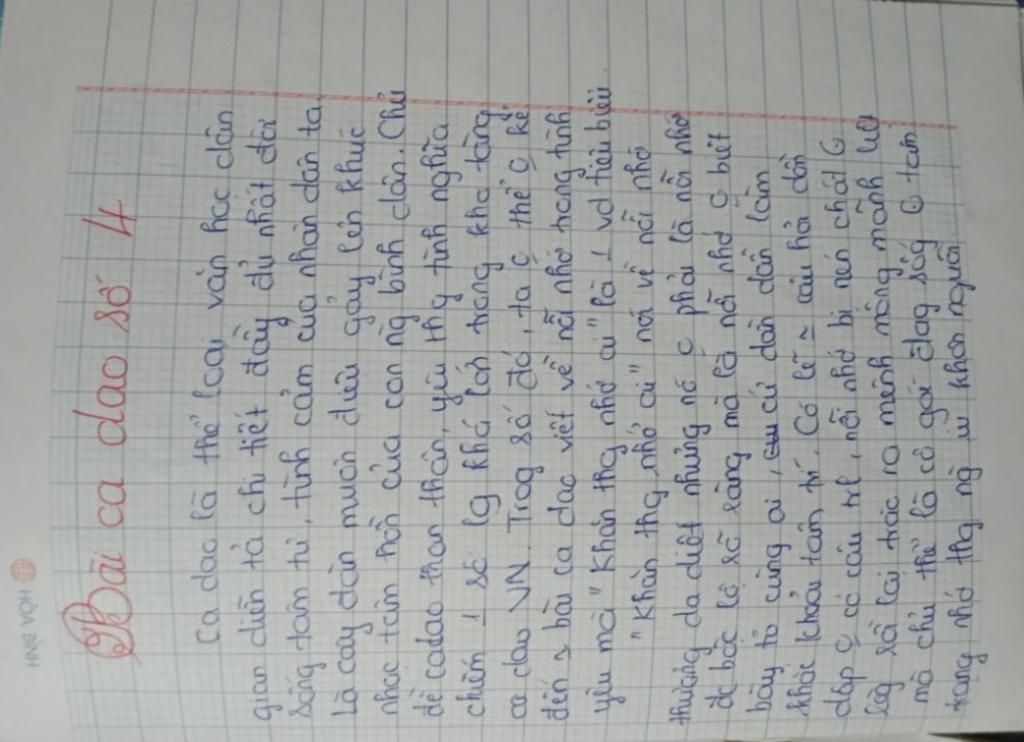 HÒA BÌNH
Bài ca dao số 4
Ca dao là thể loại văn học dân
gian diễn tả chi tiết đầy đủ nhất đời
sống tâm tư, tình cảm của nhân dân ta.
Là cây đàn muôn điệu gảy lên khúc
nhạc tâm hồn của con ng bình dân. Chủ
đề ca dao than thân, yêu thg tình nghĩa
chiếm 1 số lg khá lớn trong kho tàng
ca dao VN. Trog số đó, ta c thể c kể
đến ~ bài ca dao viết về nỗi nhớ trong tình
yêu mà "Khăn thg nhớ ai" là 1 vd tiêu biểu.
"Khăn thg nhớ ai" nói về nỗi nhớ
thương da diết nhưng nó c phải là nỗi nhớ
đc bộc lộ sỗ sàng mà là nỗi nhớ c biết
bày tỏ cùng ai, cứ dồn dần làm
khắc khoải tâm trí. Có lẽ ~ câu hỏi dồn
dập c có câu trl, nỗi nhớ bị nén chặt
lòg rồi lại trào ra mênh mông mãnh liệt
mà chủ thể là cô gái đag sốg tâm
trạng nhớ thg ng iu khôn nguôi.